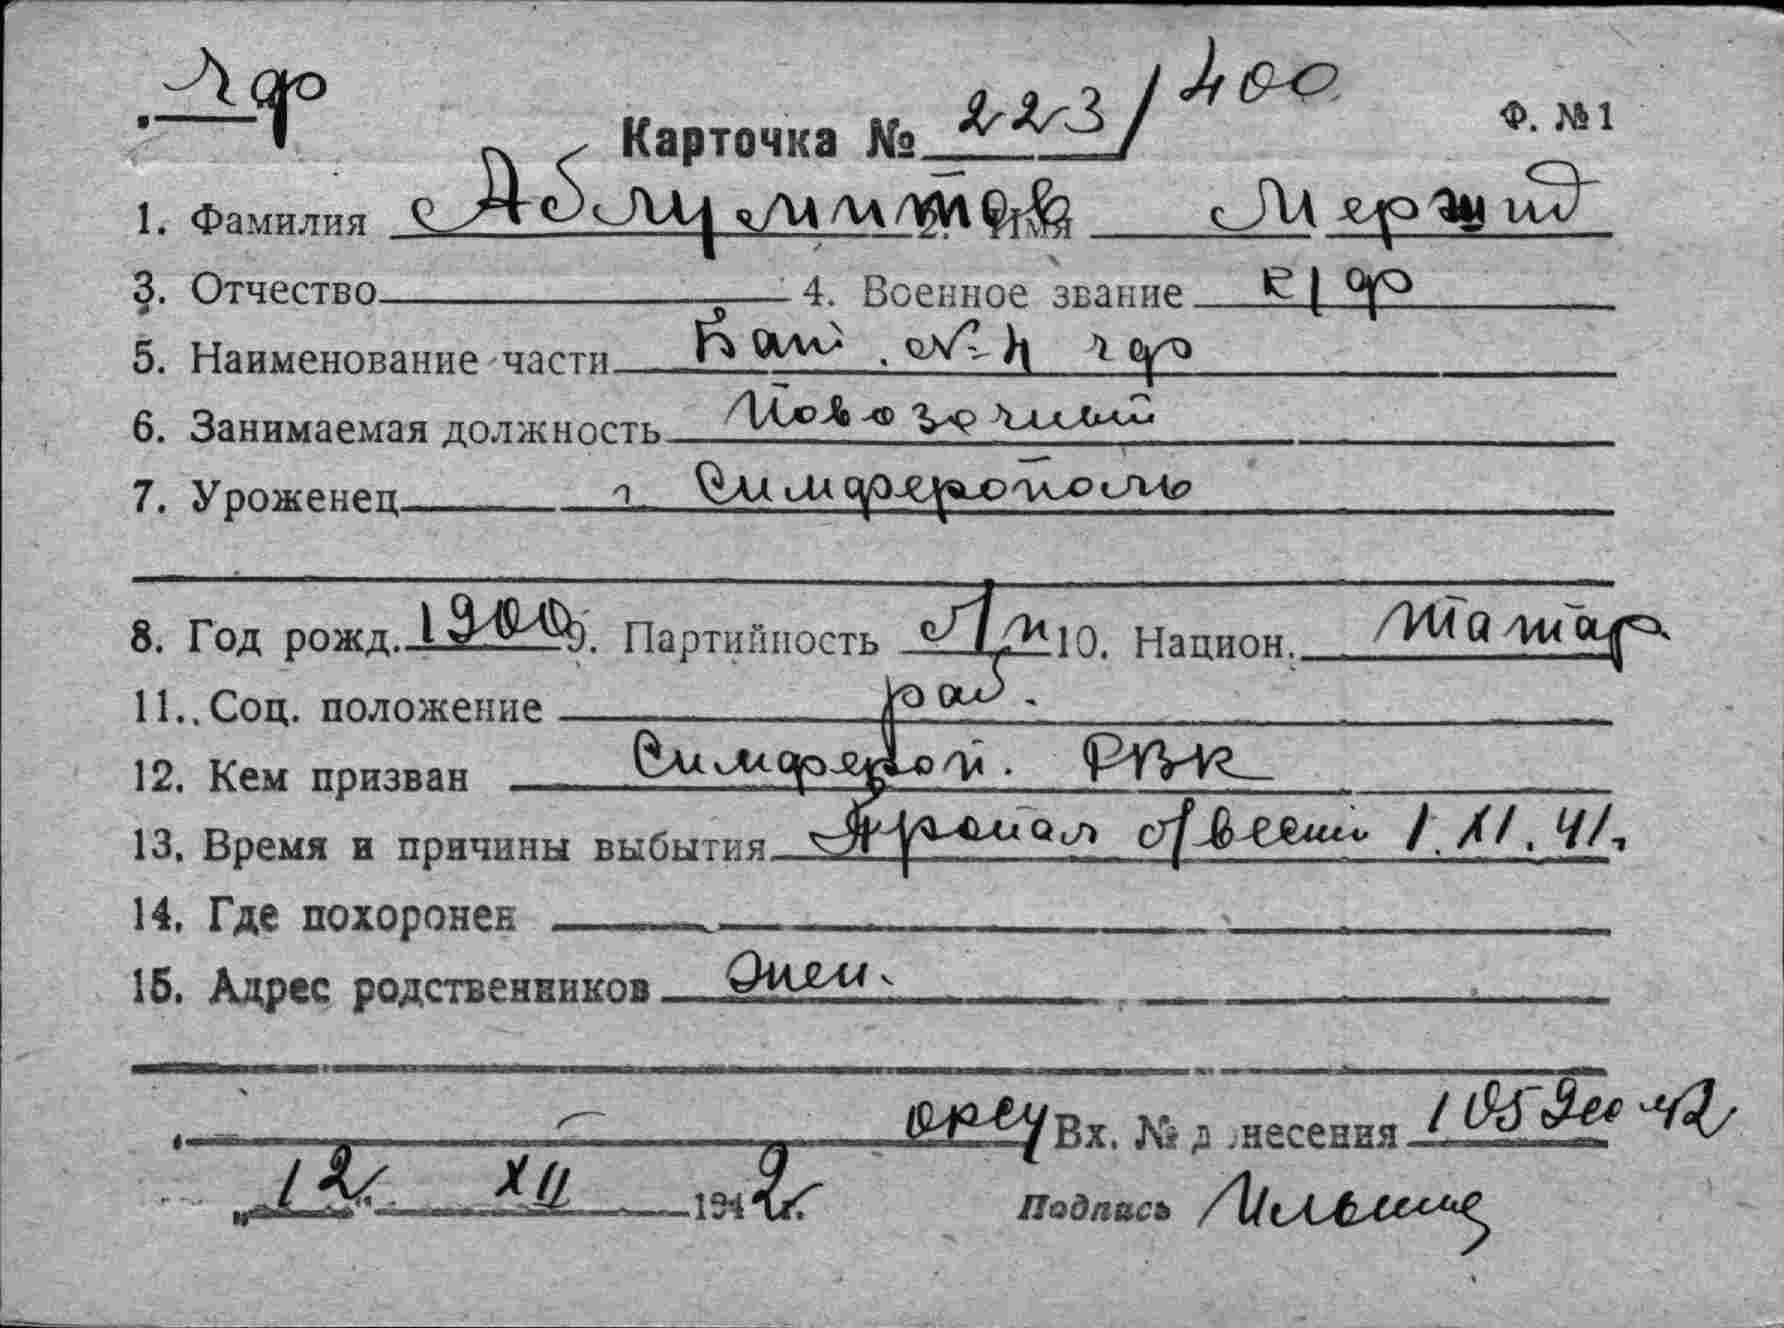 чф
Карточка № 223/400 Ф. №1
1. Фамилия Аблумитов 2. Имя Мержид
3. Отчество 4. Военное звание к/ф
5. Наименование части Бат. № 4 чф
6. Занимаемая должность Повозочный
7. Уроженец г Симферополь
8. Год рожд. 1900 9. Партийность 10. Национ. татар
11. Соц. положение раб.
12. Кем призван Симфероп. РВК
13. Время и причины выбытия Пропал б/вести 1.XI.41г
14. Где похоронен
15. Адрес родственников
Вх. № донесения 105
„12" XII 1942г.
Подпись